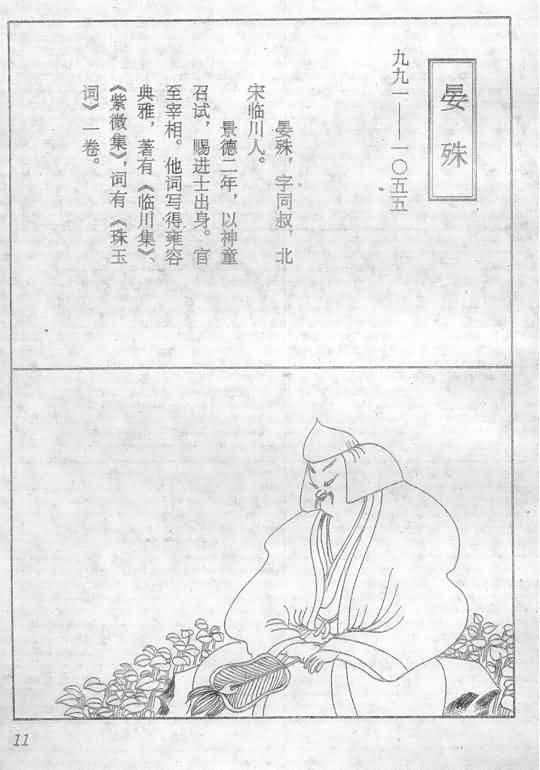 晏殊
九九一——一〇五五
晏殊，字同叔，北
宋临川人。
景德二年，以神童
召试，赐进士出身。官
至宰相。他词写得雍容
典雅，著有《临川集》、
《紫微集》，词有《珠玉
词》一卷。
11